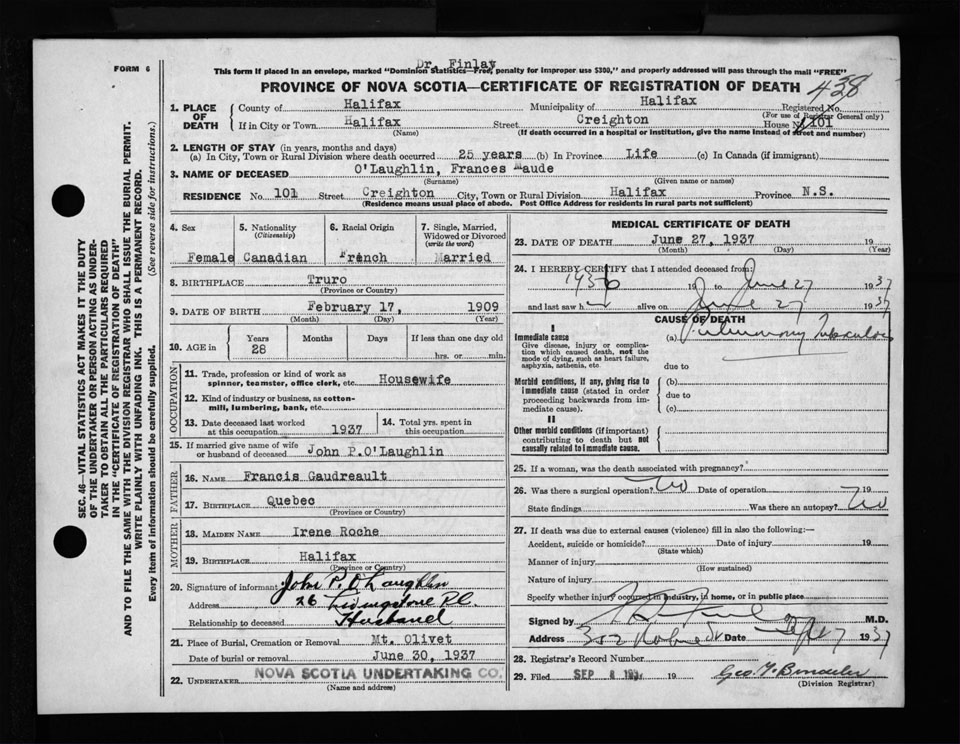 Dr. Finlay
FORM 6
This form if placed in an envelope, marked "Dominion Statistics—Free, penalty for improper use $300," and properly addressed will pass through the mail "FREE"
PROVINCE OF NOVA SCOTIA—CERTIFICATE OF REGISTRATION OF DEATH 438
1. PLACE OF DEATH County of Halifax Municipality of Halifax Registered No.
(For use of Registrar General only)
If in City or Town Halifax Street Creighton House No. 101
(Name) (If death occurred in a hospital or institution, give the name instead of street and number)
2. LENGTH OF STAY (in years, months and days)
(a) In City, Town or Rural Division where death occurred 25 years (b) In Province Life (c) In Canada (if immigrant)
3. NAME OF DECEASED O'Laughlin, Frances Maude
(Surname) (Given name or names)
RESIDENCE No. 101 Street Creighton City, Town or Rural Division Halifax Province N.S.
(Residence means usual place of abode. Post Office Address for residents in rural parts not sufficient)
4. Sex 5. Nationality (Citizenship) 6. Racial Origin 7. Single, Married, Widowed or Divorced (write the word)
Female Canadian French Married
8. BIRTHPLACE Truro
(Province or Country)
9. DATE OF BIRTH February 17, 1909
(Month) (Day) (Year)
10. AGE in Years Months Days If less than one day old
28 hrs. or min.
OCCUPATION
11. Trade, profession or kind of work as spinner, teamster, office clerk, etc. Housewife
12. Kind of industry or business, as cotton-mill, lumbering, bank, etc.
13. Date deceased last worked at this occupation 1937 14. Total yrs. spent in this occupation
15. If married give name of wife or husband of deceased John P.O'Laughlin
FATHER
16. NAME Francis Gaudreault
17. BIRTHPLACE Quebec
(Province or Country)
MOTHER
18. MAIDEN NAME Irene Roche
19. BIRTHPLACE Halifax
(Province or Country)
20. Signature of informant John P. O'Laughlin
Address 26 Livingstone Pl.
Relationship to deceased Husband
21. Place of Burial, Cremation or Removal Mt. Olivet
Date of burial or removal June 30, 1937
22. UNDERTAKER NOVA SCOTIA UNDERTAKING CO.
(Name and address)
MEDICAL CERTIFICATE OF DEATH
23. DATE OF DEATH June 27, 1937 19
(Month) (Day)
24. I HEREBY CERTIFY that I attended deceased from:
1936 19 to June 27 1937
and last saw h alive on June 27 1937
CAUSE OF DEATH
I
Immediate cause (a) Pulmonary
Give disease, injury or complication which caused death, not the mode of dying, such as heart failure, asphyxia, asthenia, etc.
due to
Morbid conditions, if any, giving rise to immediate cause (stated in order proceeding backwards from immediate cause).
(b)
due to
(c)
II
Other morbid conditions (if important) contributing to death but not causally related to immediate cause.
25. If a woman, was the death associated with pregnancy?
26. Was there a surgical operation? No Date of operation 19
State findings Was there an autopsy? No
27. If death was due to external causes (violence) fill in also the following:—
Accident, suicide or homicide? Date of injury 19
(State which)
Manner of injury
(How sustained)
Nature of injury
Specify whether injury occurred in industry, in home, or in public place
Signed by M.D.
Address Date 1937
28. Registrar's Record Number
29. Filed SEP 19
(Division Registrar)
SEC. 46—VITAL STATISTICS ACT MAKES IT THE DUTY
OF THE UNDERTAKER OR PERSON ACTING AS UNDER-
TAKER TO OBTAIN ALL THE PARTICULARS REQUIRED
IN THE "CERTIFICATE OF REGISTRATION OF DEATH"
AND TO FILE THE SAME WITH THE DIVISION REGISTRAR WHO SHALL ISSUE THE BURIAL PERMIT.
WRITE PLAINLY WITH UNFADING INK. THIS IS A PERMANENT RECORD.
Every item of information should be carefully supplied. (See reverse side for instructions.)